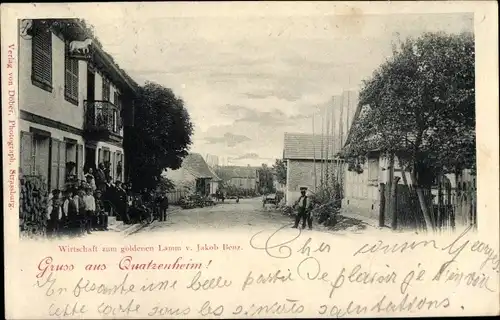 Verlag von Dubër, Photograph., Strassburg.
Wirtschaft zum goldenen Lamm v. Jakob Benz.
Gruss aus Quatzenheim!
Cher cousin Georges,
En faisant une belle partie de plaisir je t'envoie
cette carte sous les sincères salutations.